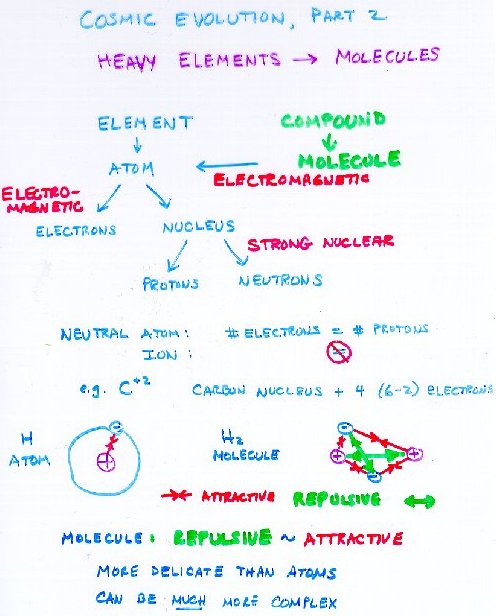 COSMIC EVOLUTION, PART 2
HEAVY ELEMENTS → MOLECULES
ELEMENT COMPOUND
ATOM MOLECULE
ELECTROMAGNETIC
ELECTRO-
MAGNETIC
ELECTRONS NUCLEUS
STRONG NUCLEAR
PROTONS NEUTRONS
NEUTRAL ATOM: # ELECTRONS = # PROTONS
ION: =
e.g. C+2 CARBON NUCLEUS + 4 (6-2) ELECTRONS
H
ATOM
- +
H2
MOLECULE
- + + -
ATTRACTIVE REPULSIVE
MOLECULE: REPULSIVE ~ ATTRACTIVE
MORE DELICATE THAN ATOMS
CAN BE MUCH MORE COMPLEX